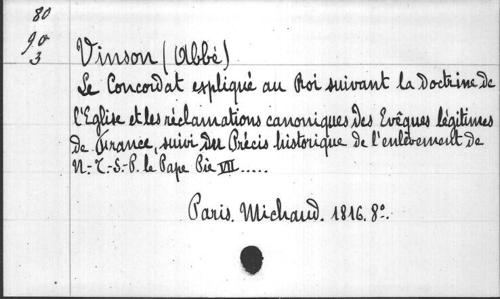 80
90
3
Vinson (Abbé)
Le Concordat expliqué au Roi suivant la Doctrine de
l'Eglise et les réclamations canoniques des Evêques légitimes
de France, suivi du Précis historique de l'enlèvement de
N.-T.-S.-P. le Pape Pie VII.....
Paris. Michaud. 1816. 8º.